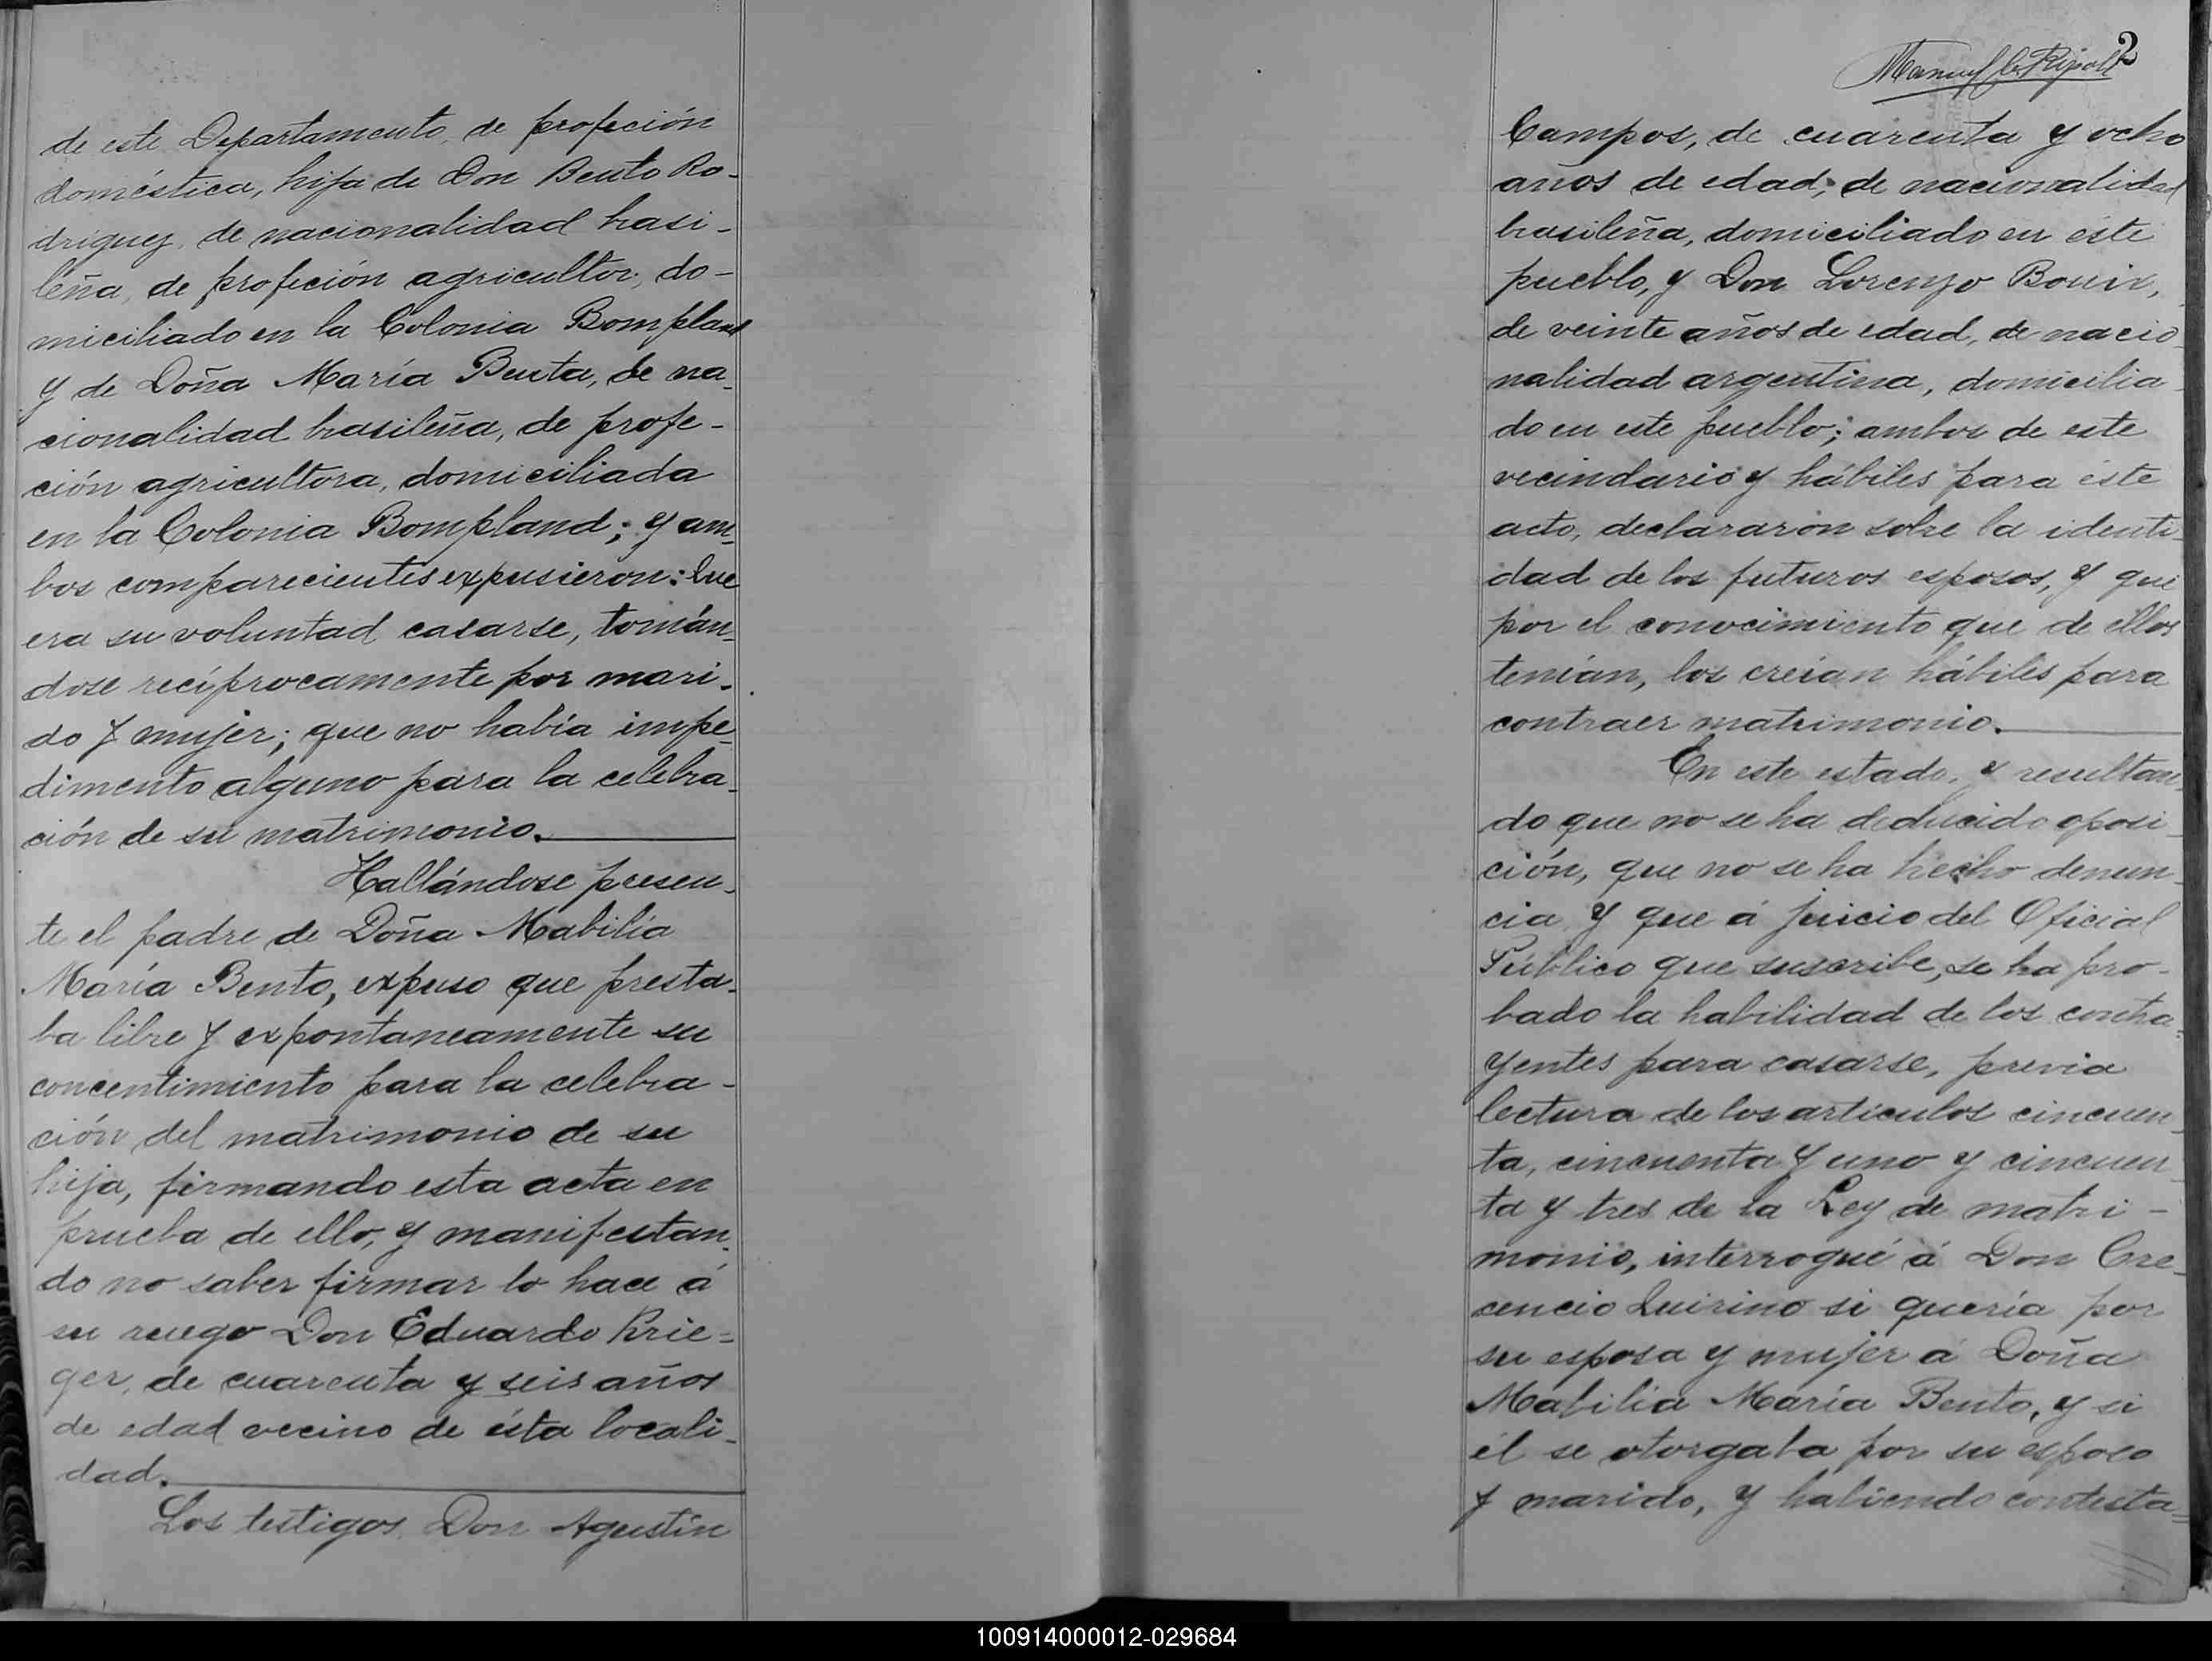 de este Departamento, de profeción
doméstica, hija de Don Bento Ro-
driguez, de nacionalidad brasi-
leña, de profeción agricultor, do-
miciliado en la Colonia Bompland
y de Doña María Benta, de na-
cionalidad brasileña, de profe-
ción agricultora, domiciliada
en la Colonia Bompland; y am-
bos comparecientes expusieron: Que
era su voluntad casarse, tomán-
dose recíprocamente por mari-
do y mujer; que no había impe-
dimento alguno para la celebra-
ción de su matrimonio.
Hallándose presen-
te el padre de Doña Mabilia
María Bento, expuso que presta-
ba libre y expontaneamente su
concentimiento para la celebra-
ción del matrimonio de su
hija, firmando esta acta en
prueba de ello, y manifestan-
do no saber firmar lo hace á
su ruego Don Eduardo Krie=
ger, de cuarenta y seis años
de edad vecino de ésta locali-
dad.
Los testigos, Don Agustín
2
Manuel Ripoll
Campos, de cuarenta y ocho
años de edad, de nacionalidad
brasileña, domiciliado en éste
pueblo, y Don Lorenzo Bouix,
de veinte años de edad, de nacio-
nalidad argentina, domicilia-
do en este pueblo; ambos de este
vecindario y hábiles para éste
acto, declararon sobre la identi-
dad de los futuros esposos, y que
por el conocimiento que de ellos
tenían, los creían hábiles para
contraer matrimonio.
En este estado, y resultan-
do que no se ha deducido oposi-
ción, que no se ha hecho denun-
cia y que á juicio del Oficial
Público que suscribe, se ha pro-
bado la habilidad de los contra-
yentes para casarse, previa
lectura de los artículos cincuen-
ta, cincuenta y uno y cincuen-
ta y tres de la Ley de matri-
monio, interrogué á Don Cre-
cencio Quirino si quería por
su esposa y mujer á Doña
Mabilia María Bento, y si
él se otorgaba por su esposo
y marido, y habiendo contesta=
100914000012-029684